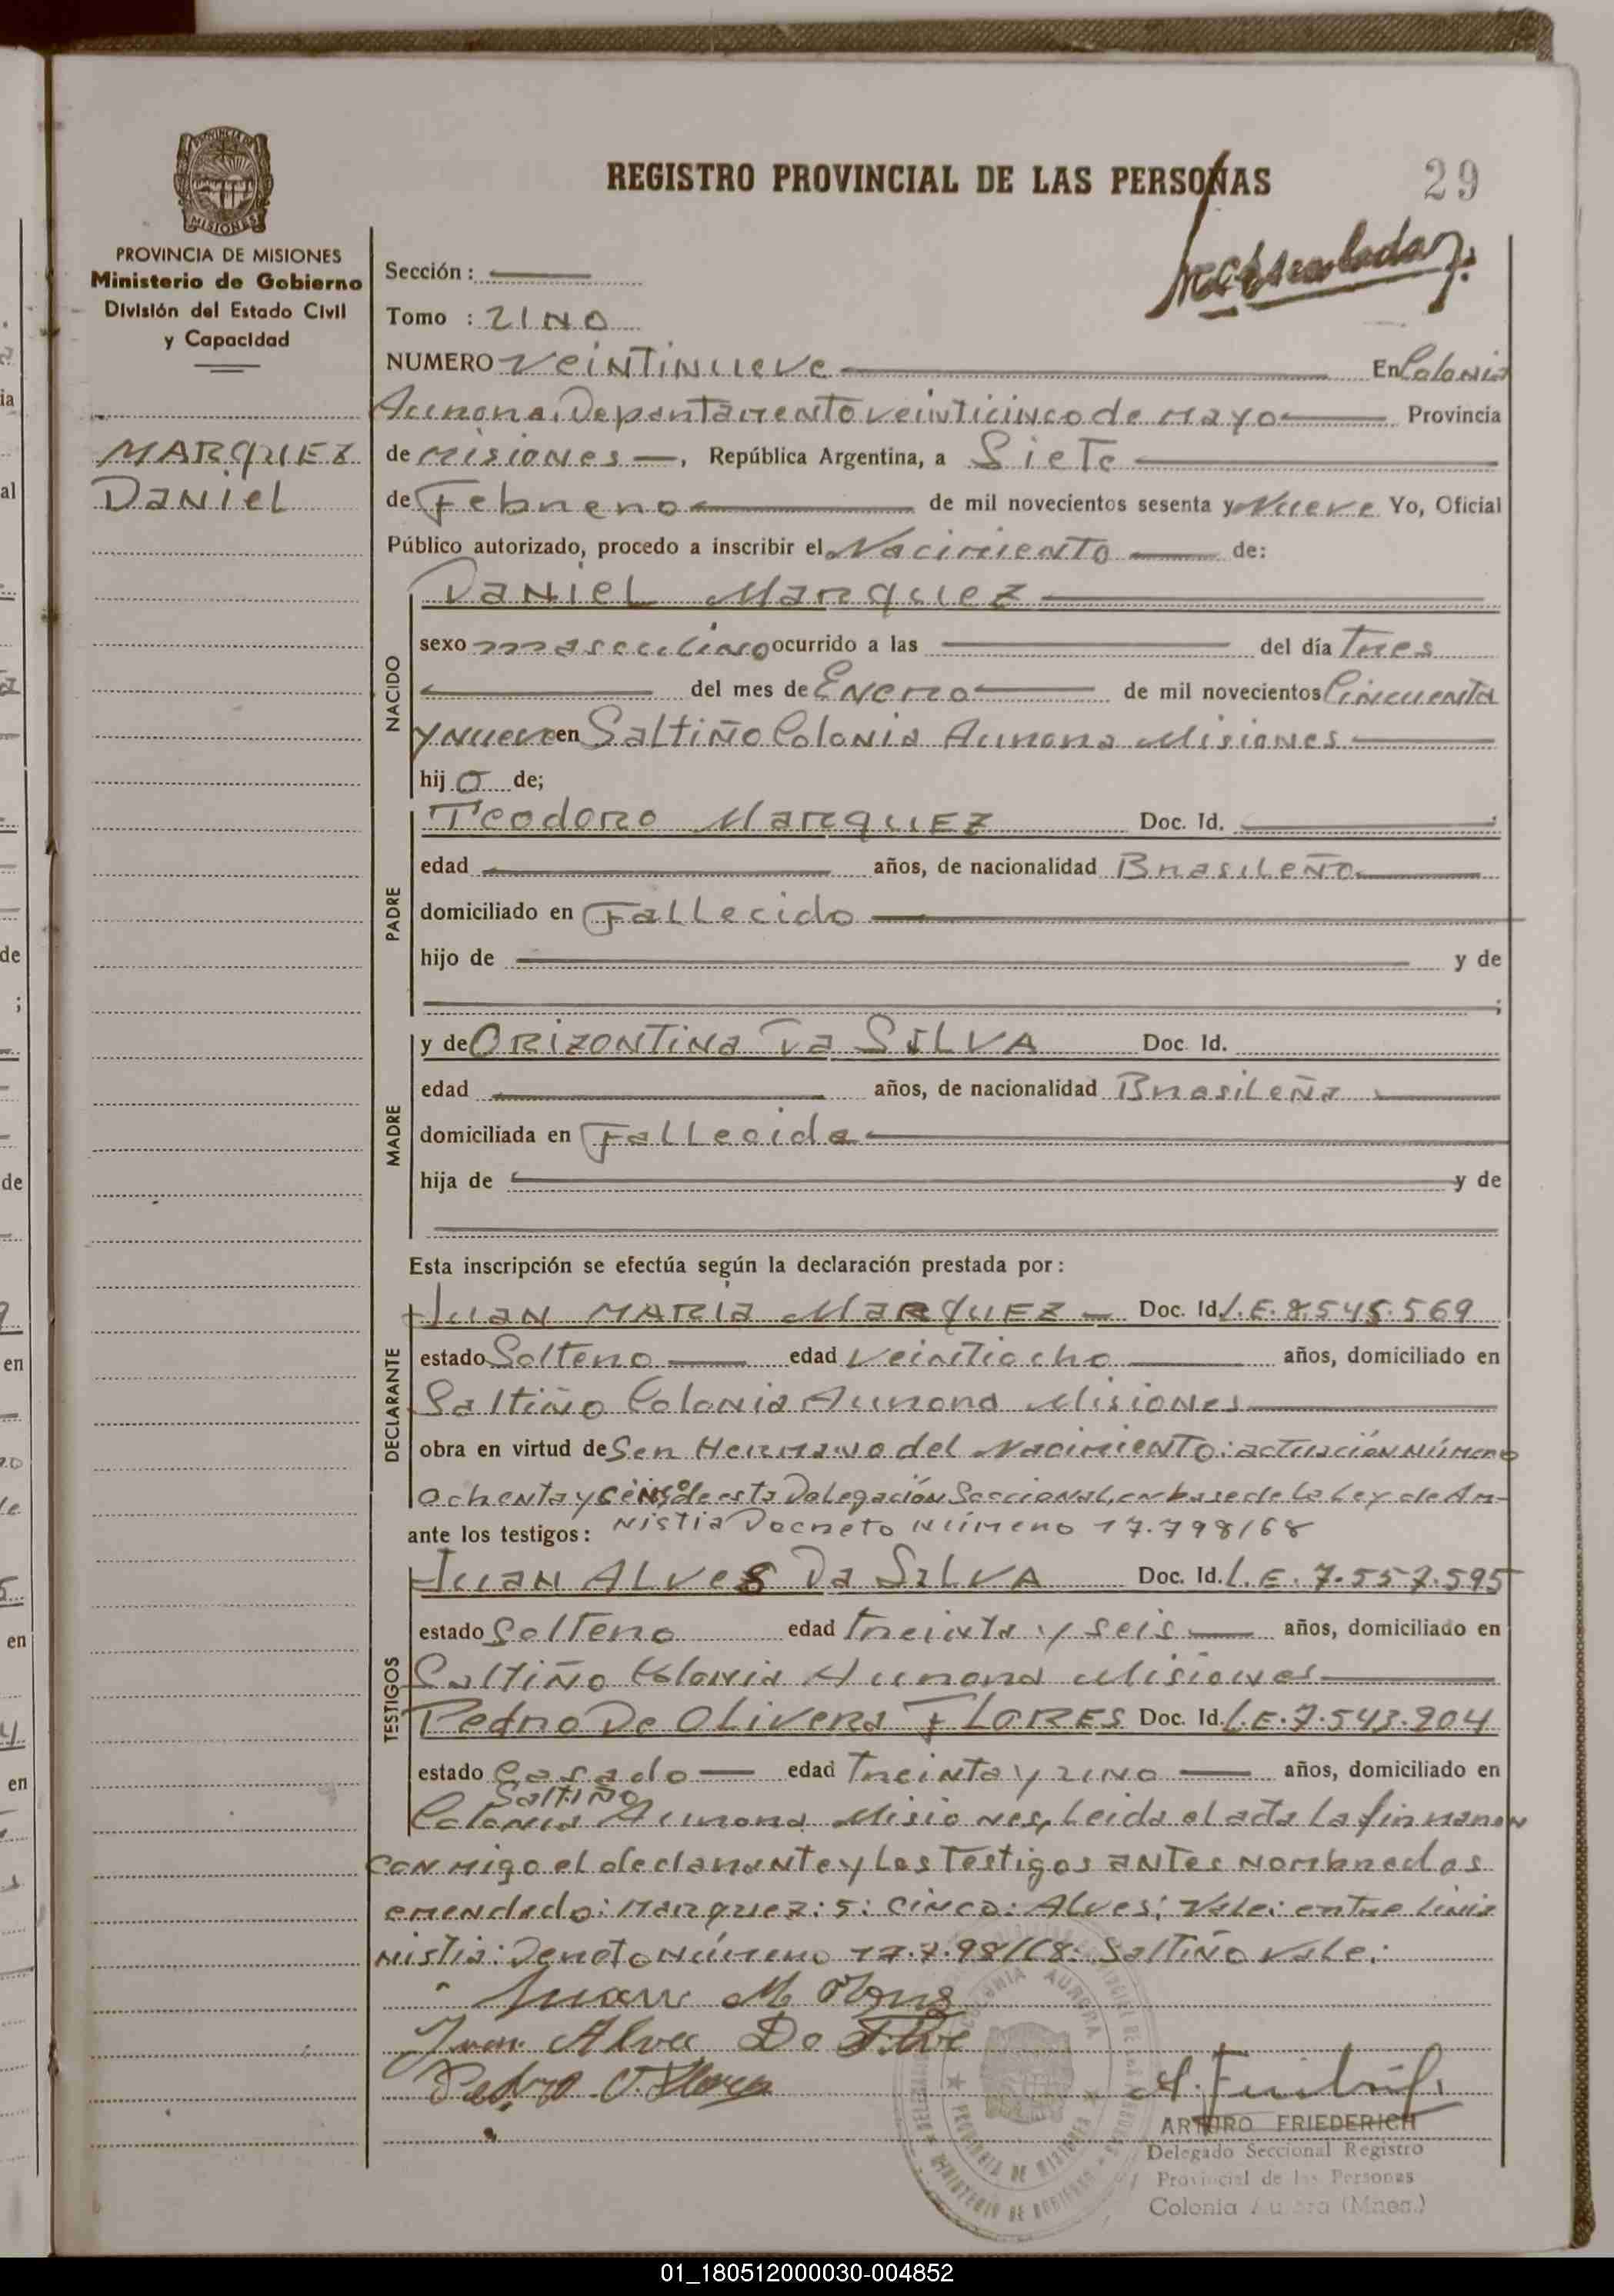 REGISTRO PROVINCIAL DE LAS PERSONAS
29
PROVINCIA DE MISIONES
Ministerio de Gobierno
División del Estado Civil
y Capacidad
MARQUEZ
Daniel
Sección :
Tomo : UNO
NUMERO Veintinueve En Colonia
Aurora. Departamento veinticinco de Mayo Provincia
de Misiones, República Argentina, a Siete
de Febrero de mil novecientos sesenta y Nueve Yo, Oficial
Público autorizado, procedo a inscribir el Nacimiento de:
NACIDO
Daniel Marquez
sexo masculino ocurrido a las del día tres
del mes de Enero de mil novecientos Cincuenta
y Nueve en Saltiño Colonia Aurora Misiones
hijo de;
PADRE
Teodoro Marquez Doc. Id.
edad años, de nacionalidad Brasileño
domiciliado en Fallecido
hijo de y de
MADRE
y de Orizontina Da SilVA Doc. Id.
edad años, de nacionalidad Brasileña
domiciliada en Fallecida
hija de y de
Esta inscripción se efectúa según la declaración prestada por:
DECLARANTE
Juan MARIA MarquEz Doc. Id. L.E. 8.545.569
estado Soltero edad Veintiocho años, domiciliado en
Saltiño Colonia Aurora Misiones
obra en virtud de Ser Hermano del Nacimiento: actuación número
ochenta y cinco de esta Delegación Seccional, en base de la Ley de Am-
ante los testigos: nistia Decreto Número 17.798/68
TESTIGOS
Juan ALVes Da SilVA Doc. Id. L.E. 7.557.595
estado Soltero edad treinta y seis años, domiciliado en
Saltiño Colonia Aurora Misiones
Pedro De Olivera FLORES Doc. Id. L.E. 7.543.904
estado Casado edad treinta y uno años, domiciliado en
Saltiño
Colonia Aurora Misiones, Leida el acta la firmaron
con migo el declarante y los testigos antes nombrados
emendado: Marquez: 5: cinco: Alves: Vale: entre linia
nistia: Decreto número 17.7.98/68: Saltiño vale:
Juan M
Juan Alve Da
Pedro O. Flores
COLONIA AURORA
PROVINCIA DE MISIONES
MINISTERIO DE GOBIERNO
ARTURO FRIEDERICH
Delegado Seccional Registro
Provincial de las Personas
Colonia Aurora (Mnes.)
01_180512000030-004852